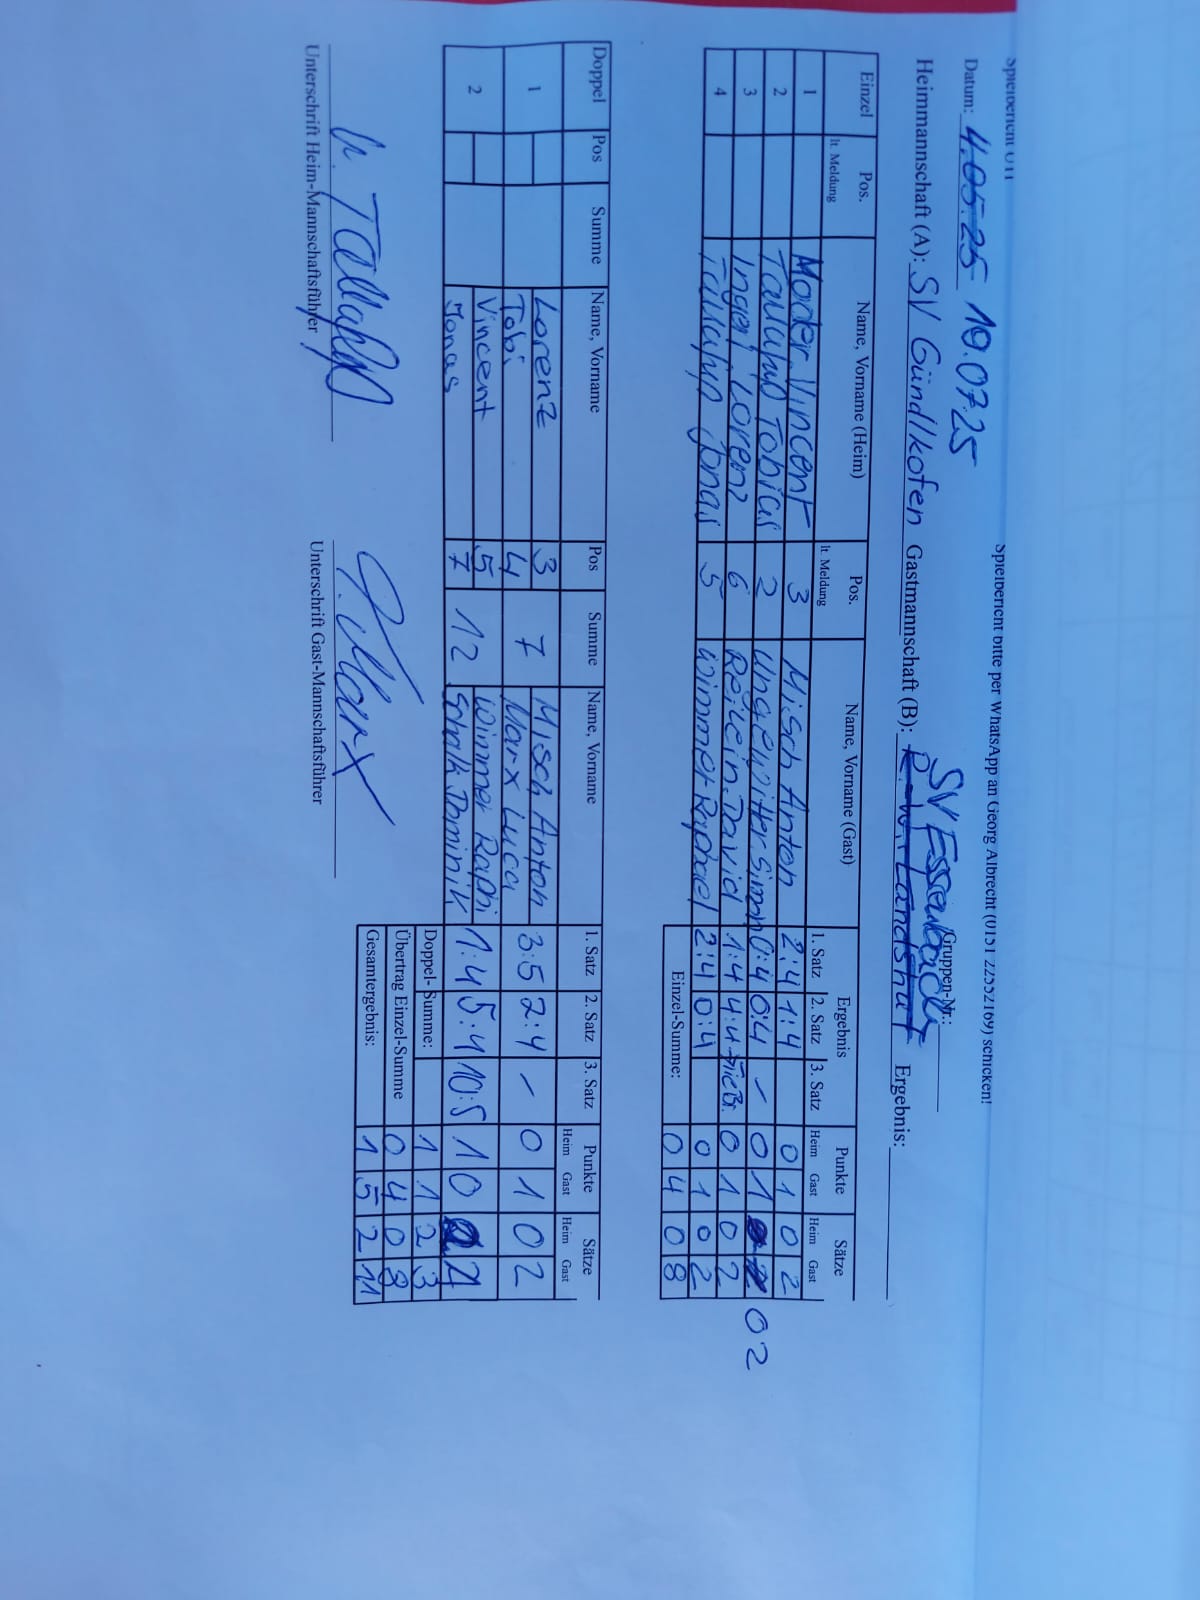 Spielbericht U11 Spielbericht bitte per WhatsApp an Georg Albrecht (0151 22552169) schicken!
Datum: 4.05.25 10.07.25 Gruppen-Nr.:
SV Essenbach
Heimmannschaft (A): SV Gündlkofen Gastmannschaft (B): R-W. Landshut Ergebnis:
Einzel Pos. Name, Vorname (Heim) Pos. Name, Vorname (Gast) Ergebnis Punkte Sätze
lt. Meldung lt. Meldung 1. Satz 2. Satz 3. Satz Heim Gast Heim Gast
1 Moder Vincent 3 Misch Anton 2:4 1:4 0 1 0 2
2 Tobias 2 Ungewitter Simon 0:4 0:4 – 0 1 0 2
3 Lorenz 6 David 1:4 4:4 0 1 0 2
4 Jonas 5 Wimmer Raphael 2:4 0:4 0 1 0 2
Einzel-Summe: 0 4 0 8
Doppel Pos Summe Name, Vorname Pos Summe Name, Vorname 1. Satz 2. Satz 3. Satz Punkte Sätze
Heim Gast Heim Gast
1 Lorenz 3 7 Misch Anton 3:5 2:4 – 0 1 0 2
Tobi 4 Marx Luca
2 Vincent 5 12 Wimmer Raphi 1:4 5:4 10:5 1 0 2 1
Jonas 7 Schalk Dominik
Doppel-Summe: 1 1 2 3
Übertrag Einzel-Summe 0 4 0 8
Gesamtergebnis: 1 5 2 11
Marx
Unterschrift Heim-Mannschaftsführer Unterschrift Gast-Mannschaftsführer